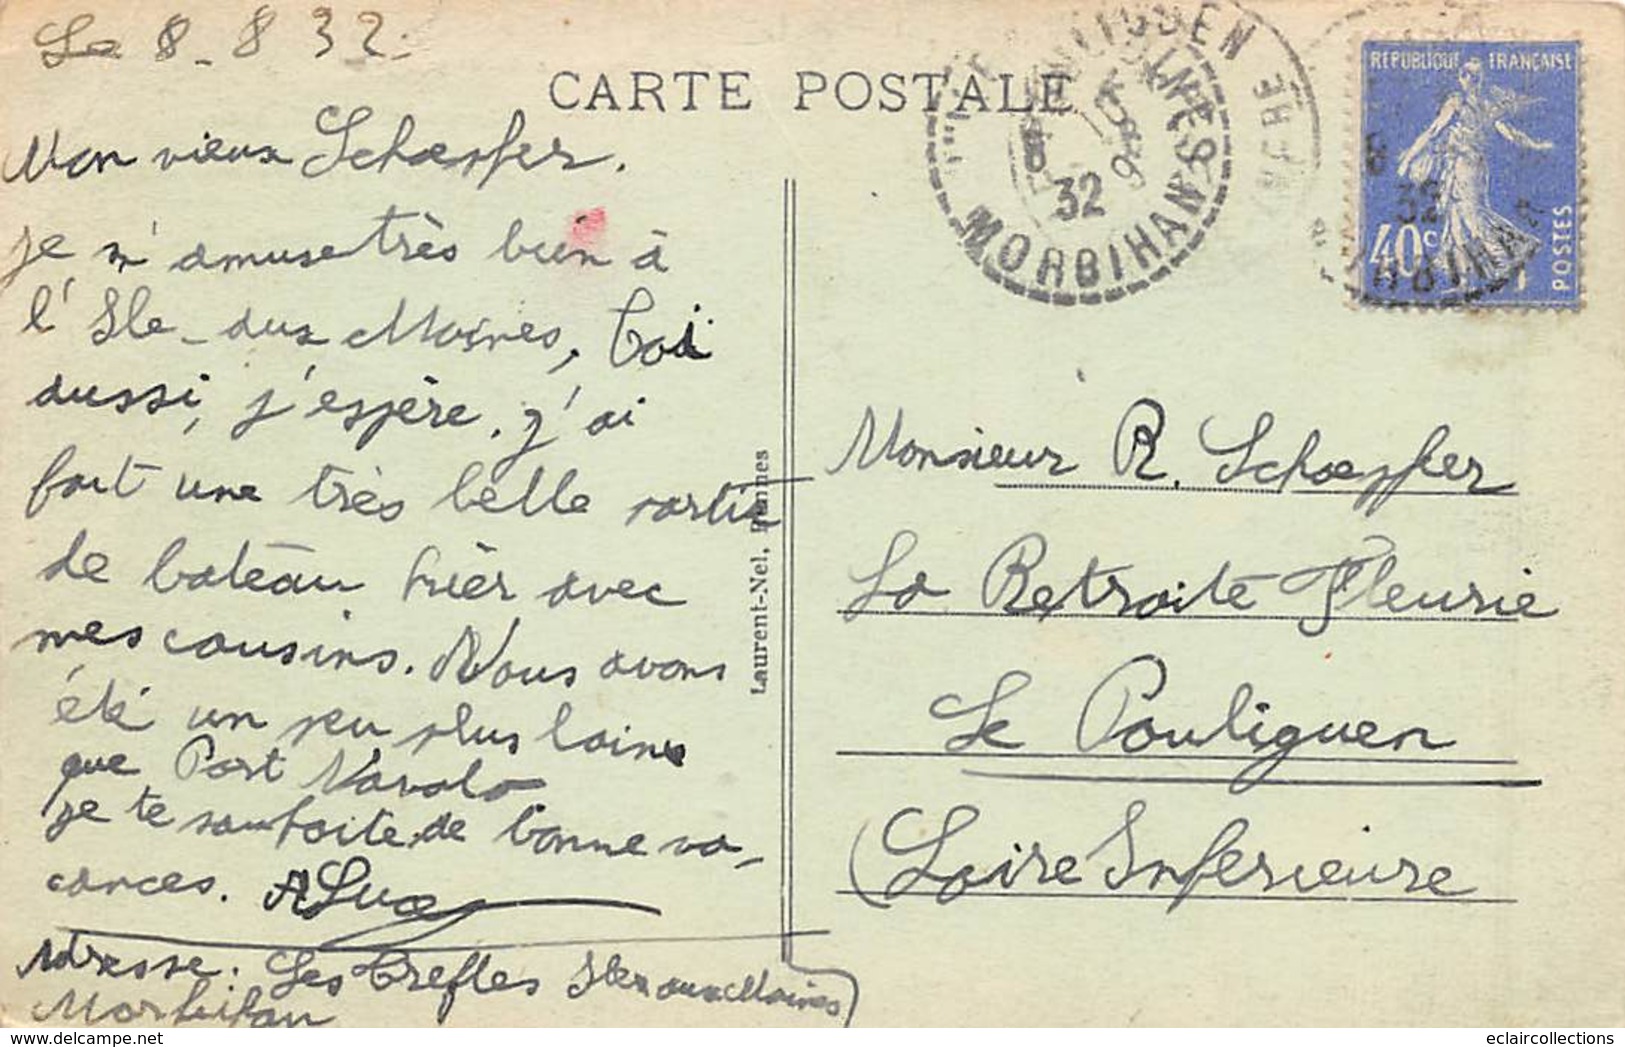 Le 8-8 32.
CARTE POSTALE
Mon vieux Schœpfer.
je m'amuse très bien à
l'Ile-aux Moines, toi
aussi, j'espère. j'ai
fait une très belle partie
de bateau hier avec
mes cousins. Nous avons
été un peu plus loin
que Port Navalo
je te souhaite de bonne va-
cances.
Adresse: Les Trefles Ile aux Moines
Morbihan
Laurent-Nel, Rennes
MORBIHAN
32
REPUBLIQUE FRANÇAISE
40c
POSTES
Monsieur R. Schœpfer
La Retraite Fleurie
Le Pouliguen
(Loire Inferieure
eclaircollections